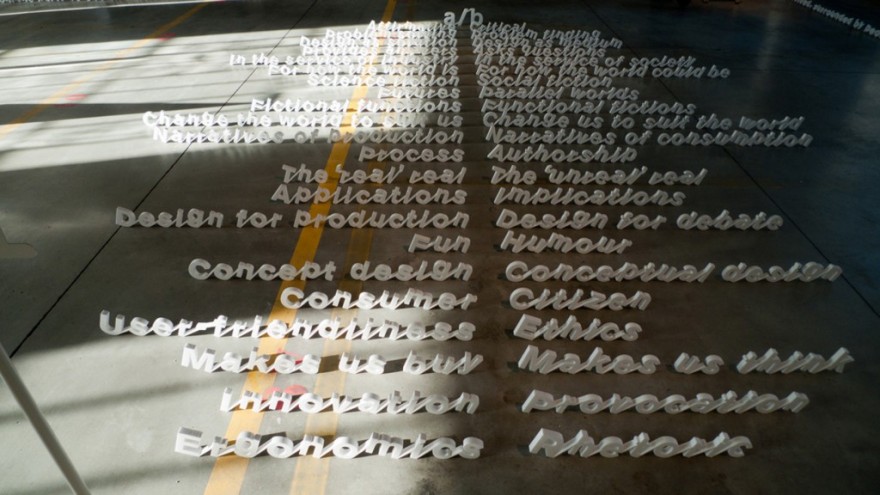 a/b
Problem finding
Design as medium
Provides answers Asks questions
In the service of industry In the service of society
For how the world is For how the world could be
Science fiction Social fiction
Futures Parallel worlds
Fictional functions Functional fictions
Change the world to suit us Change us to suit the world
Narratives of production Narratives of consumption
Process Authorship
The 'real' real The 'unreal' real
Applications Implications
Design for production Design for debate
Fun Humour
Concept design Conceptual design
Consumer Citizen
User-friendliness Ethics
Makes us buy Makes us think
Innovation Provocation
Ergonomics Rhetoric
supported by